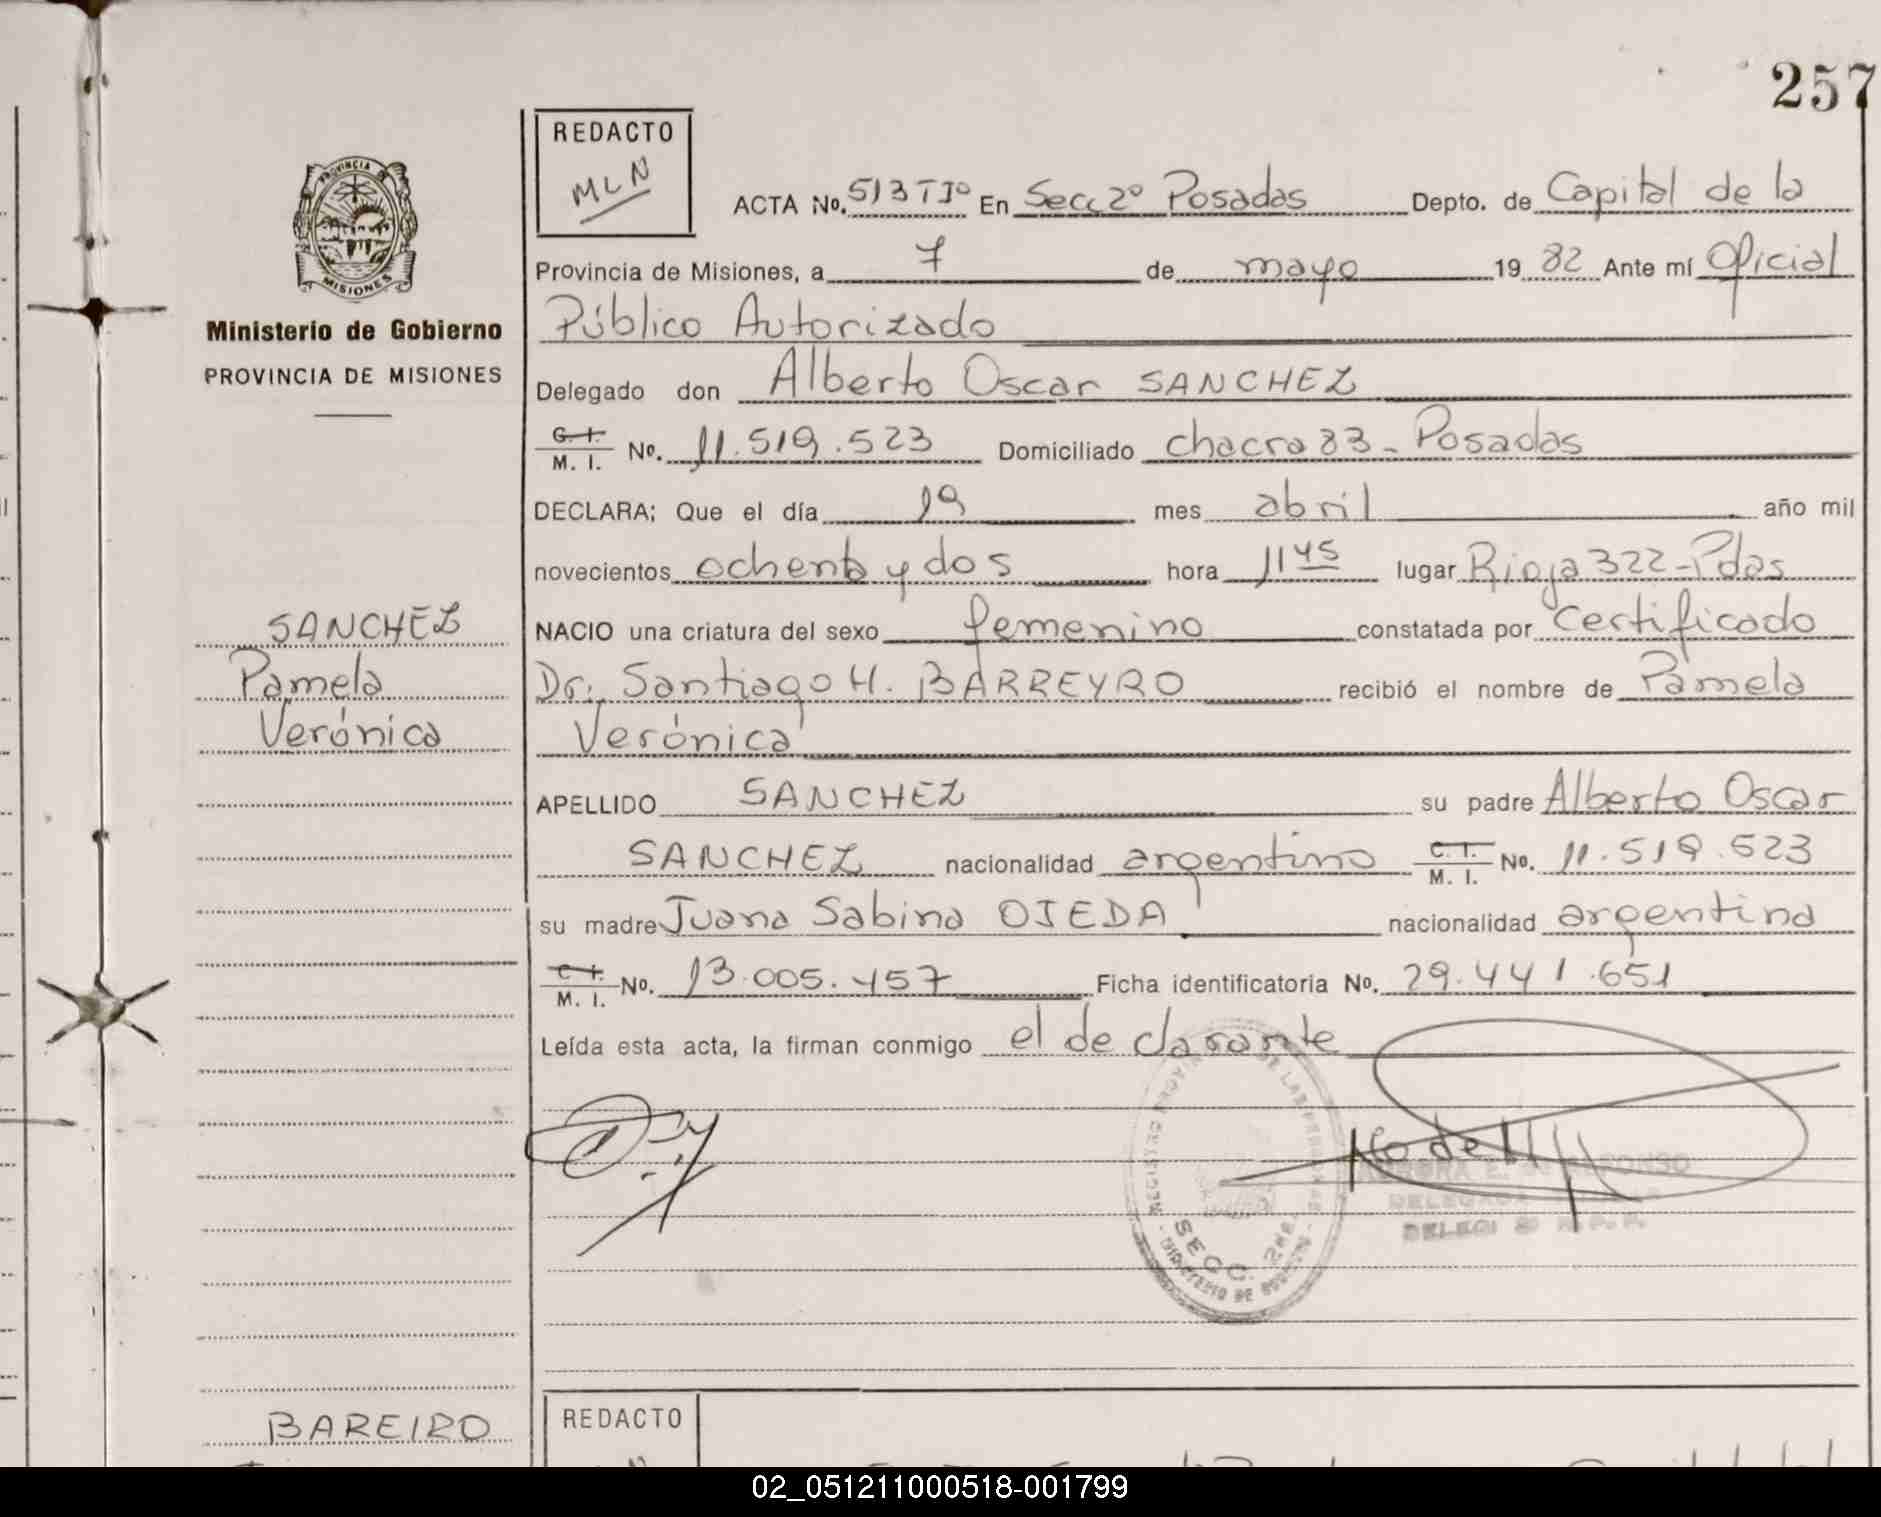 257
REDACTO
MLN
ACTA No. 513 TIº En Secc 2º Posadas Depto. de Capital de la
Provincia de Misiones, a 7 de mayo 19 82 Ante mí Oficial
Público Autorizado
Ministerio de Gobierno
PROVINCIA DE MISIONES
Delegado don Alberto Oscar SANCHEZ
C. I.
M. I. No. 11.519.523 Domiciliado chacra 83 - Posadas
DECLARA; Que el día 19 mes abril año mil
novecientos ochenta y dos hora 11 45 lugar Rioja 322 - Pdas
SANCHEZ
Pamela
Verónica
NACIO una criatura del sexo femenino constatada por certificado
Dr. Santiago H. BARREYRO recibió el nombre de Pamela
Verónica
APELLIDO SANCHEZ su padre Alberto Oscar
SANCHEZ nacionalidad argentino C. I.
M. I. No. 11.519.523
su madre Juana Sabina OJEDA nacionalidad argentina
C. I.
M. I. No. 13.005.457 Ficha identificatoria No. 29.441.651
Leída esta acta, la firman conmigo el declarante
SECC. 2da.
BAREIRO
REDACTO
02_051211000518-001799